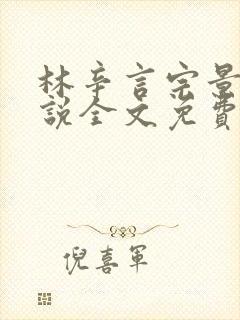 林辛言宗景
說全文免費
倪喜軍